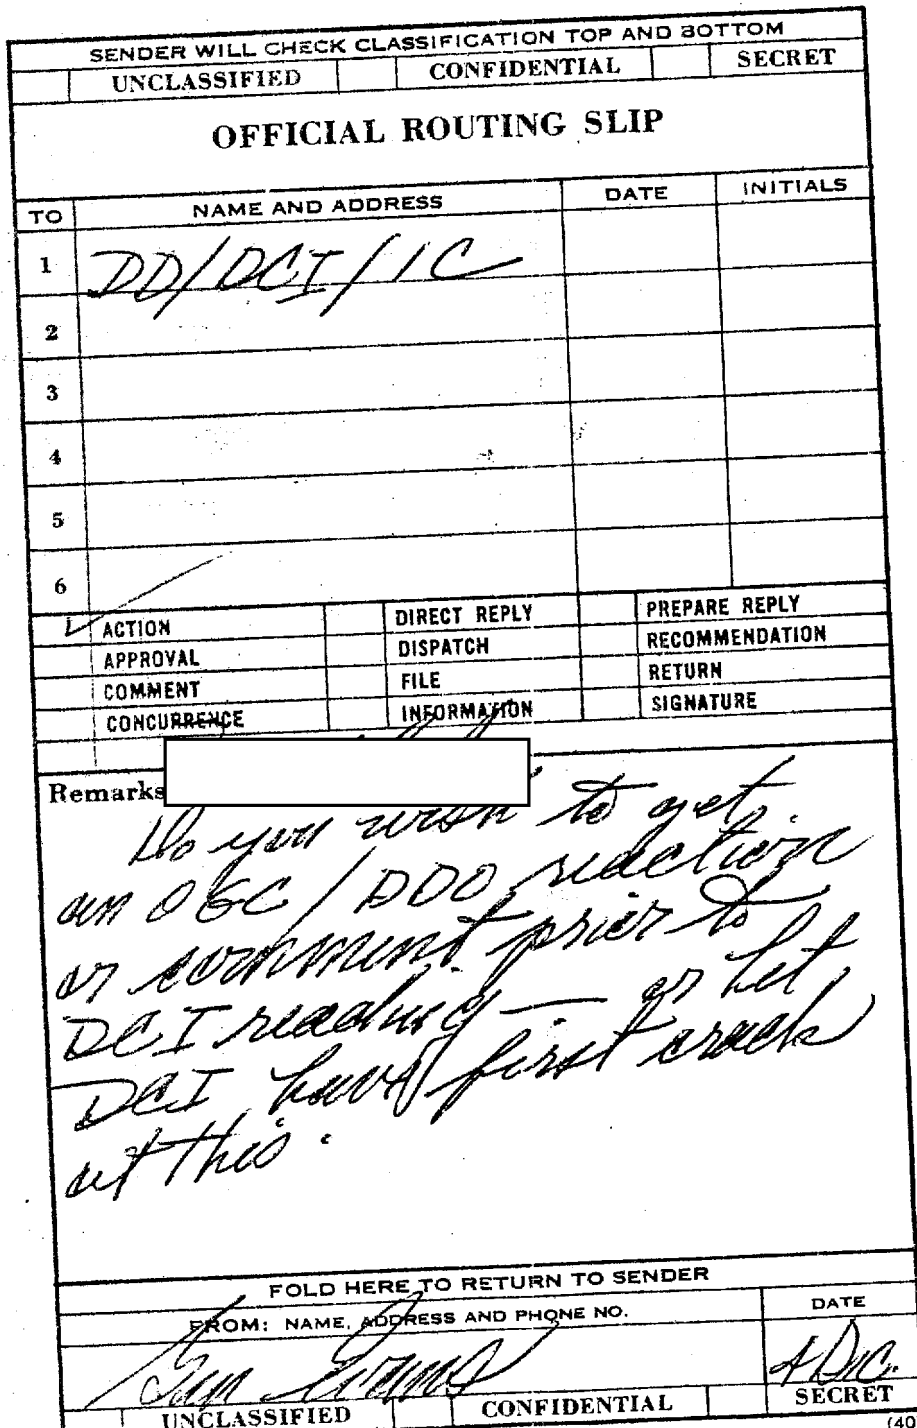 SENDER WILL CHECK CLASSIFICATION TOP AND BOTTOM
UNCLASSIFIED CONFIDENTIAL SECRET
OFFICIAL ROUTING SLIP
TO NAME AND ADDRESS DATE INITIALS
1 DD/DCI/IC
2
3
4
5
6
ACTION DIRECT REPLY PREPARE REPLY
APPROVAL DISPATCH RECOMMENDATION
COMMENT FILE RETURN
CONCURRENCE INFORMATION SIGNATURE
Remarks
Do you wish to get
an OGC/DDO reaction
or comment prior to
DCI reading — or let
DCI have first crack
at this.
FOLD HERE TO RETURN TO SENDER
FROM: NAME, ADDRESS AND PHONE NO. DATE
Evans 4 Dec.
UNCLASSIFIED CONFIDENTIAL SECRET
(40